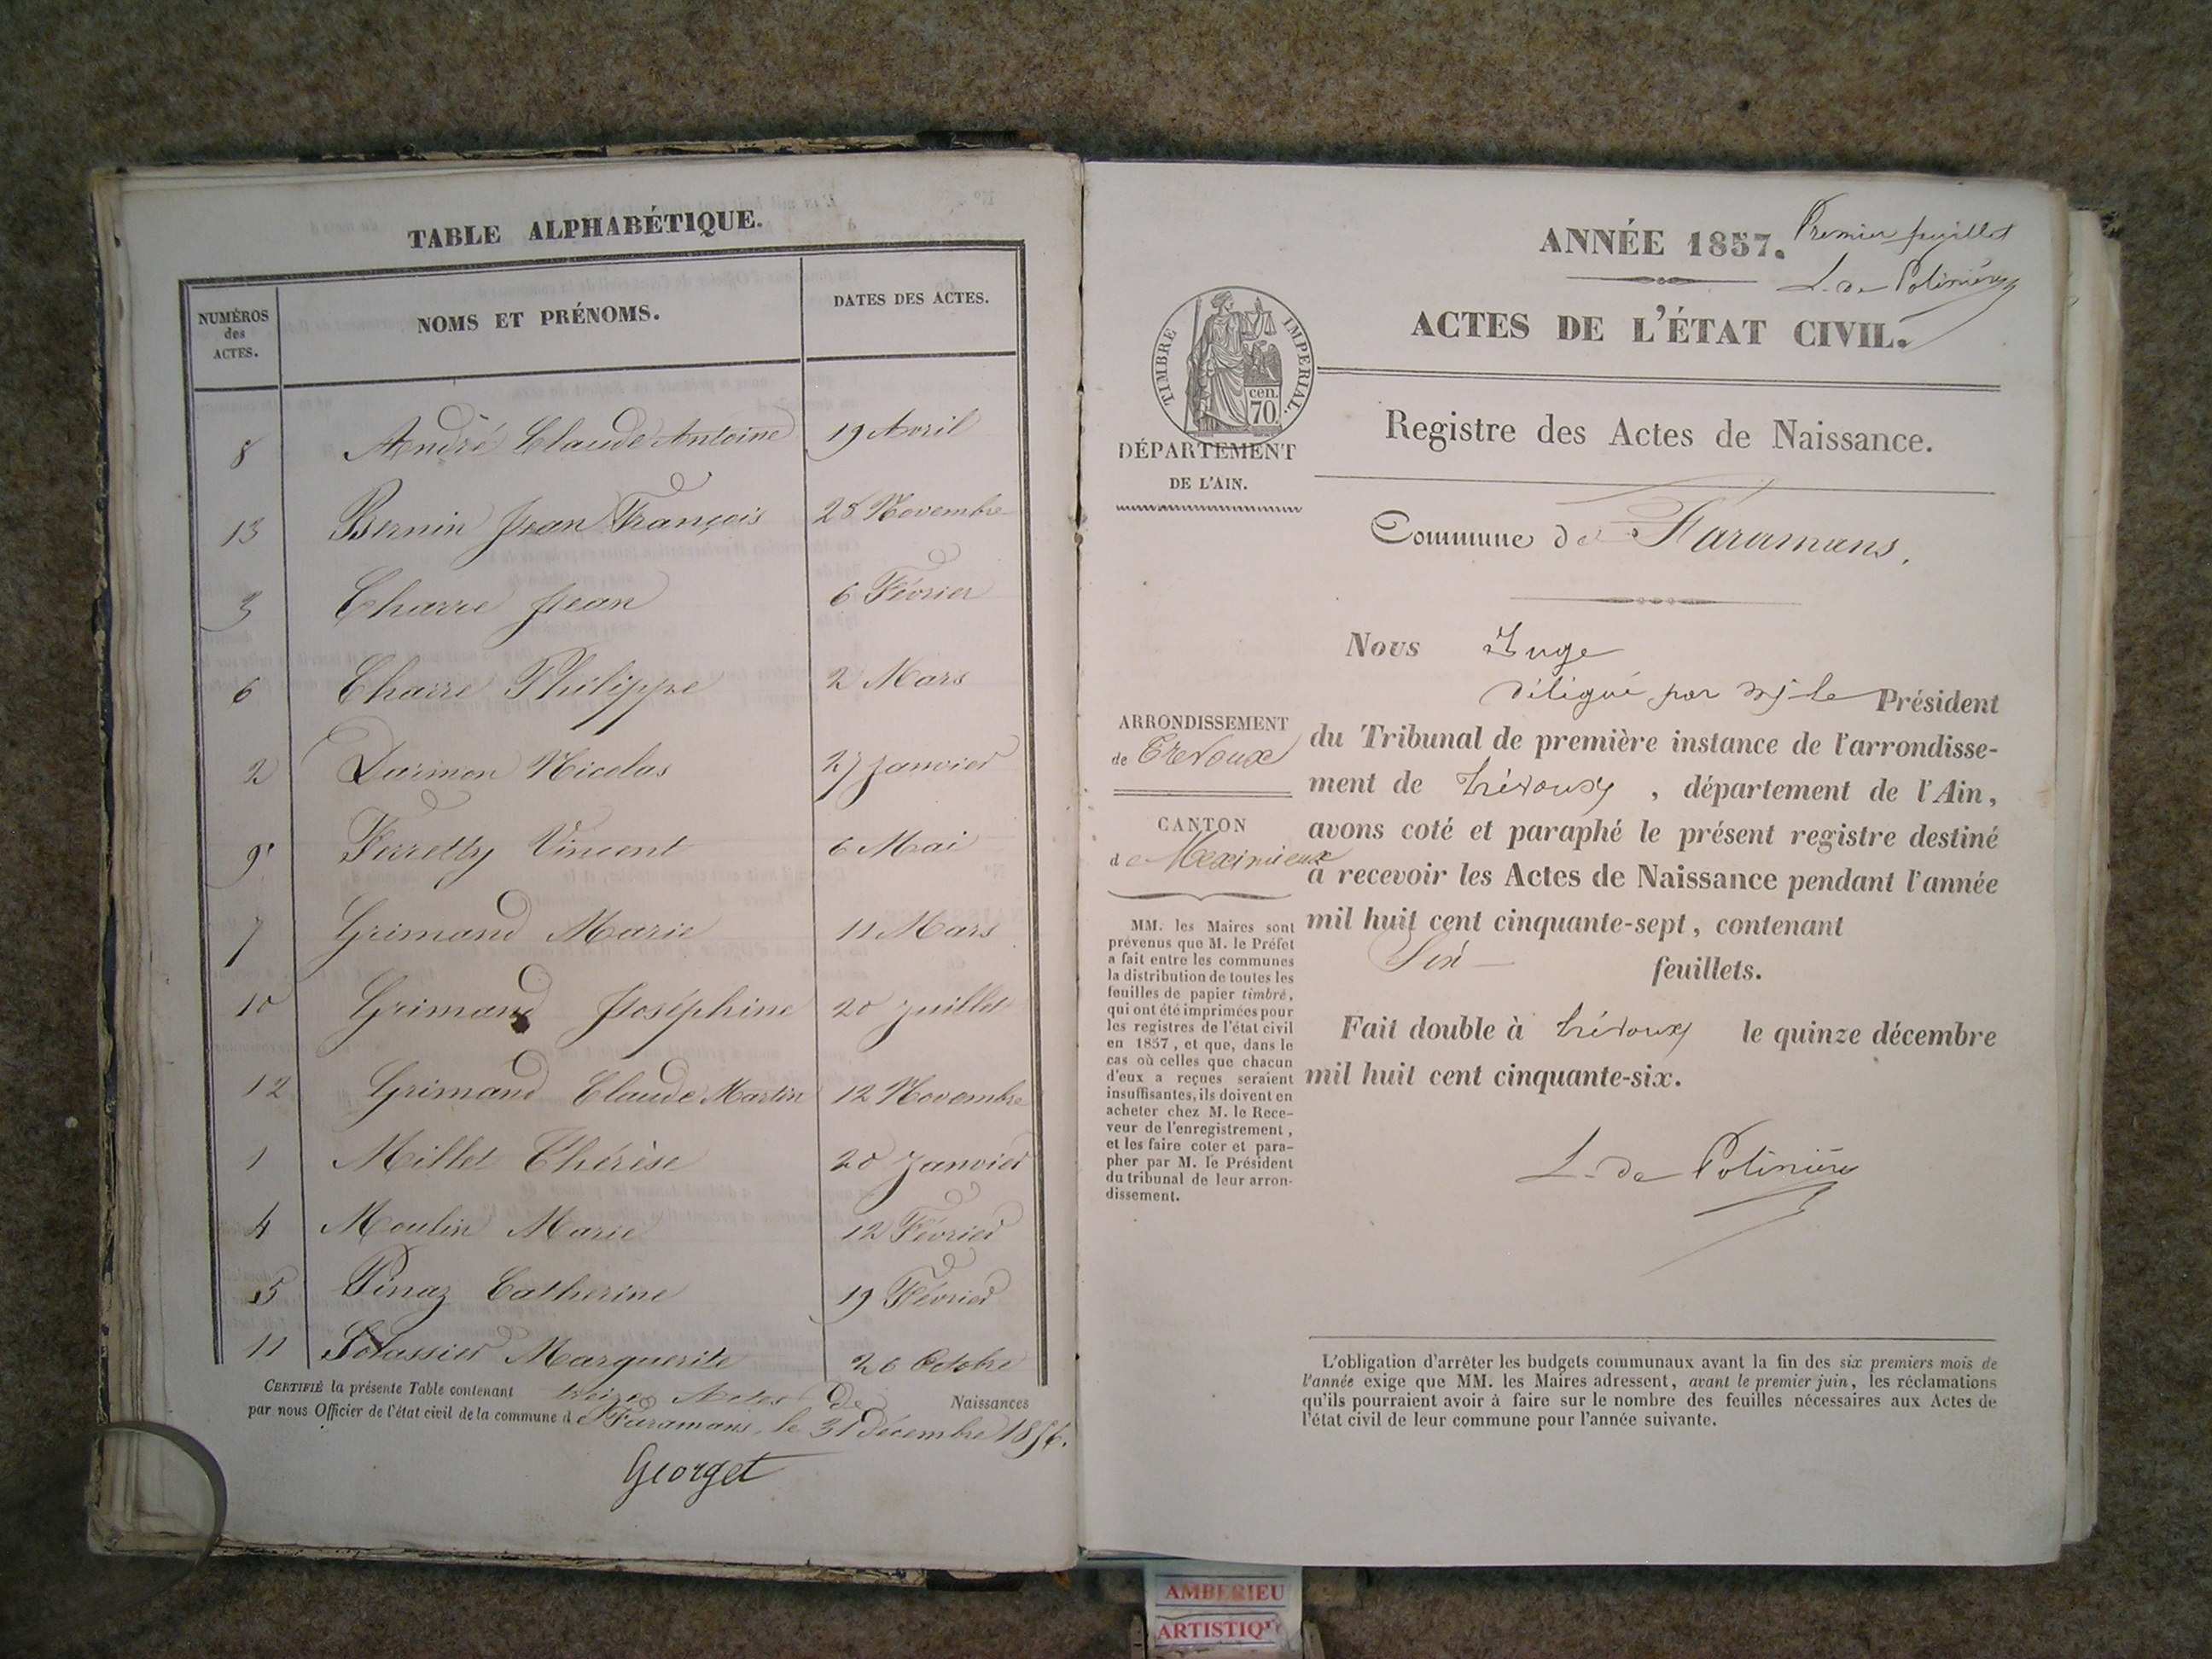 TABLE ALPHABÉTIQUE.
NUMÉROS des ACTES. NOMS ET PRÉNOMS. DATES DES ACTES.
8 André Claude Antoine 19 Avril
13 Bernin Jean François 28 Novembre
3 Charre Jean 6 Février
6 Charre Philippe 2 Mars
2 Darmon Nicolas 27 Janvier
9 Ferretty Vincent 6 Mai
7 Grimand Marie 11 Mars
10 Grimand Joséphine 20 Juillet
12 Grimand Claude Martin 12 Novembre
1 Millet Thérèse 20 Janvier
4 Moulin Marie 12 Février
5 Pinaz Catherine 19 Février
11 Marguerite 26 Octobre
CERTIFIÉ la présente Table contenant treize Actes de Naissances
par nous Officier de l'état civil de la commune d e Faramans, le 31 décembre 1856.
Georget
ANNÉE 1857. Premier feuillet
L. de Polinière
ACTES DE L'ÉTAT CIVIL.
TIMBRE IMPERIAL.
cen.
70
DÉPARTEMENT
DE L'AIN.
Registre des Actes de Naissance.
Commune de Faramans.
ARRONDISSEMENT
de Trevoux
CANTON
de Meximieux
MM. les Maires sont
prévenus que M. le Préfet
a fait entre les communes
la distribution de toutes les
feuilles de papier timbré,
qui ont été imprimées pour
les registres de l'état civil
en 1857, et que, dans le
cas où celles que chacun
d'eux a reçues seraient
insuffisantes, ils doivent en
acheter chez M. le Rece-
veur de l'enregistrement,
et les faire coter et para-
pher par M. le Président
du tribunal de leur arron-
dissement.
Nous Juge
délégué par Mr le Président
du Tribunal de première instance de l'arrondisse-
ment de trévoux, département de l'Ain,
avons coté et paraphé le présent registre destiné
à recevoir les Actes de Naissance pendant l'année
mil huit cent cinquante-sept, contenant
Six feuillets.
Fait double à trévoux le quinze décembre
mil huit cent cinquante-six.
L. de Polinière
L'obligation d'arrêter les budgets communaux avant la fin des six premiers mois de
l'année exige que MM. les Maires adressent, avant le premier juin, les réclamations
qu'ils pourraient avoir à faire sur le nombre des feuilles nécessaires aux Actes de
l'état civil de leur commune pour l'année suivante.
AMBERIEU
ARTISTIQU